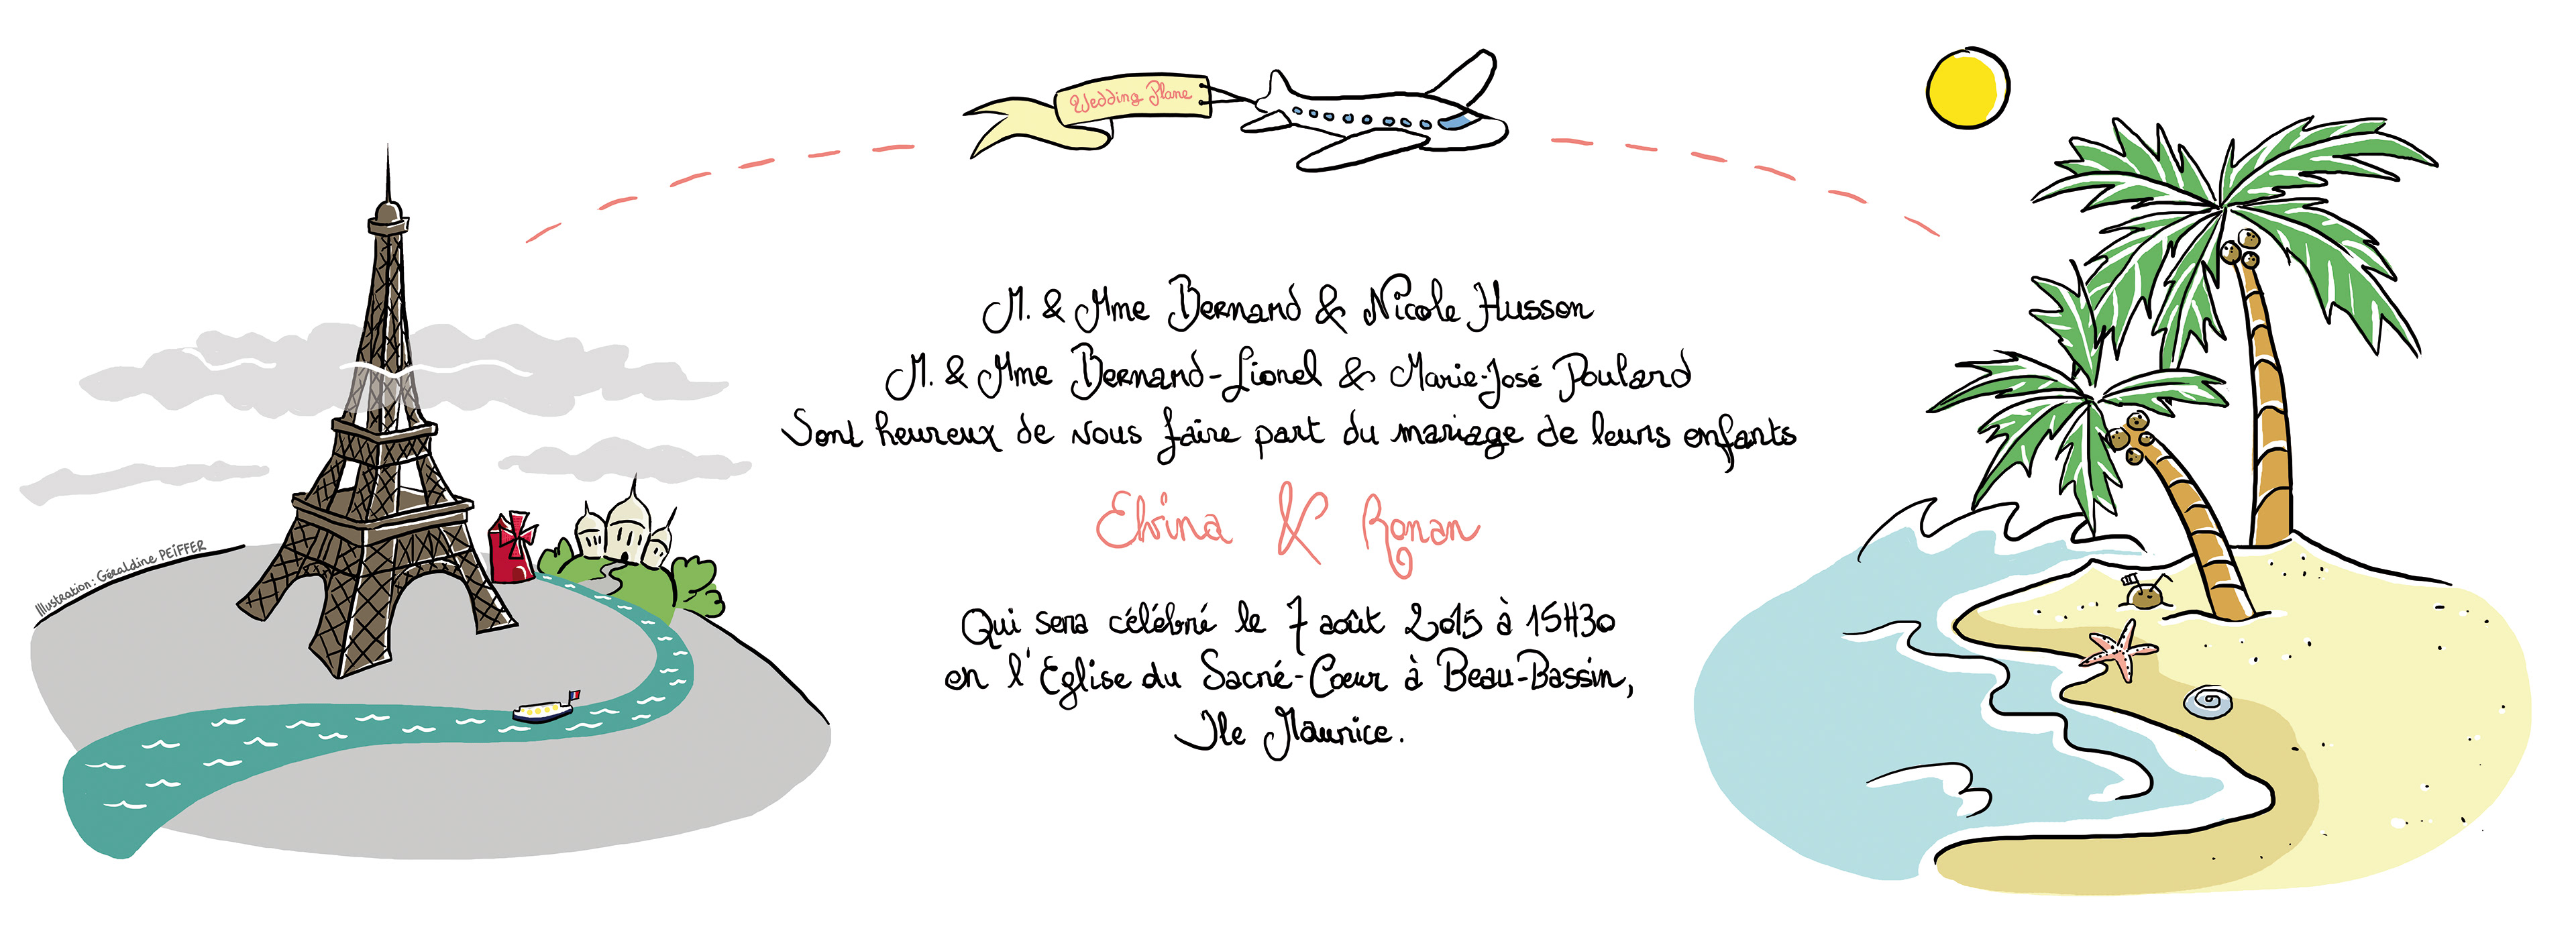 Wedding Plane
M. & Mme Bernard & Nicole Husson
M. & Mme Bernard-Lionel & Marie-José Poulard
Sont heureux de vous faire part du mariage de leurs enfants
Elvina & Ronan
Qui sera célébré le 7 août 2015 à 15H30
en l'Eglise du Sacré-Cœur à Beau-Bassin,
Ile Maurice.
Illustration: Géraldine PEiFFER